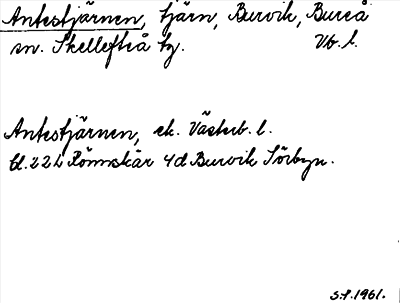 Antestjärnen, tjärn, Burvik, Bureå
sn. Skellefteå ty. Vb. l.
Antestjärnen, ek. Västerb. l.
bl. 22 L Rönnskär 4d Burvik Sörbyn.
S.F. 1961.